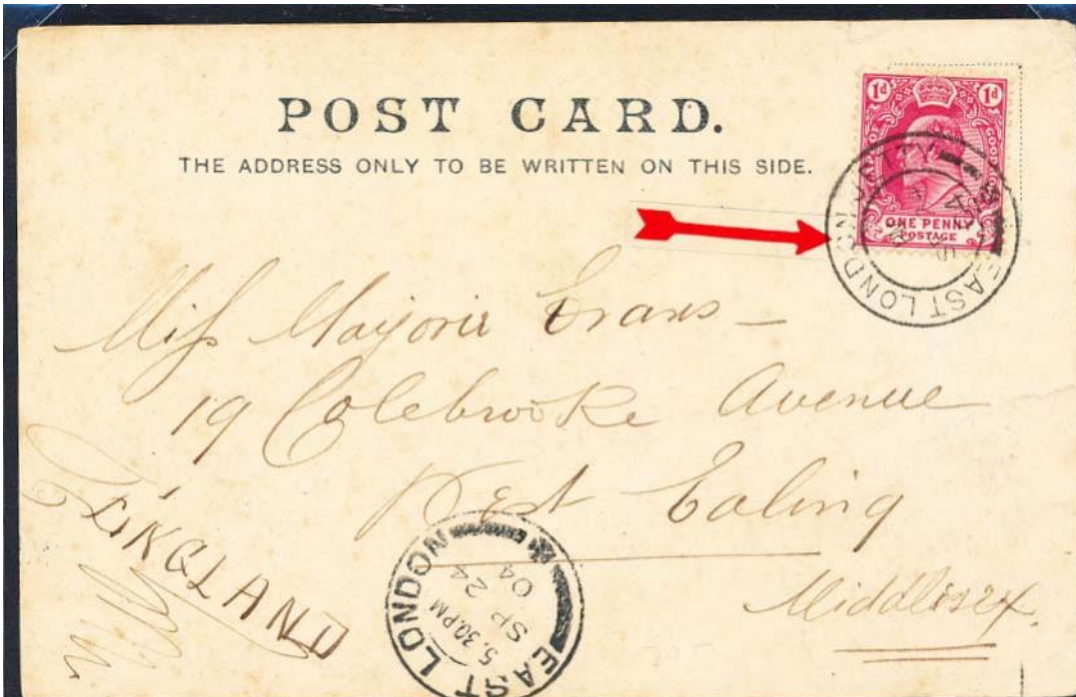 POST CARD.
THE ADDRESS ONLY TO BE WRITTEN ON THIS SIDE.
1d 1d
CAPE OF GOOD
ONE PENNY
POSTAGE
EAST LONDON
Miss Marjorie Evans —
19 Colebrooke Avenue
West Ealing
Middlesex.
ENGLAND
EAST LONDON
5.30.PM
SP 24
04